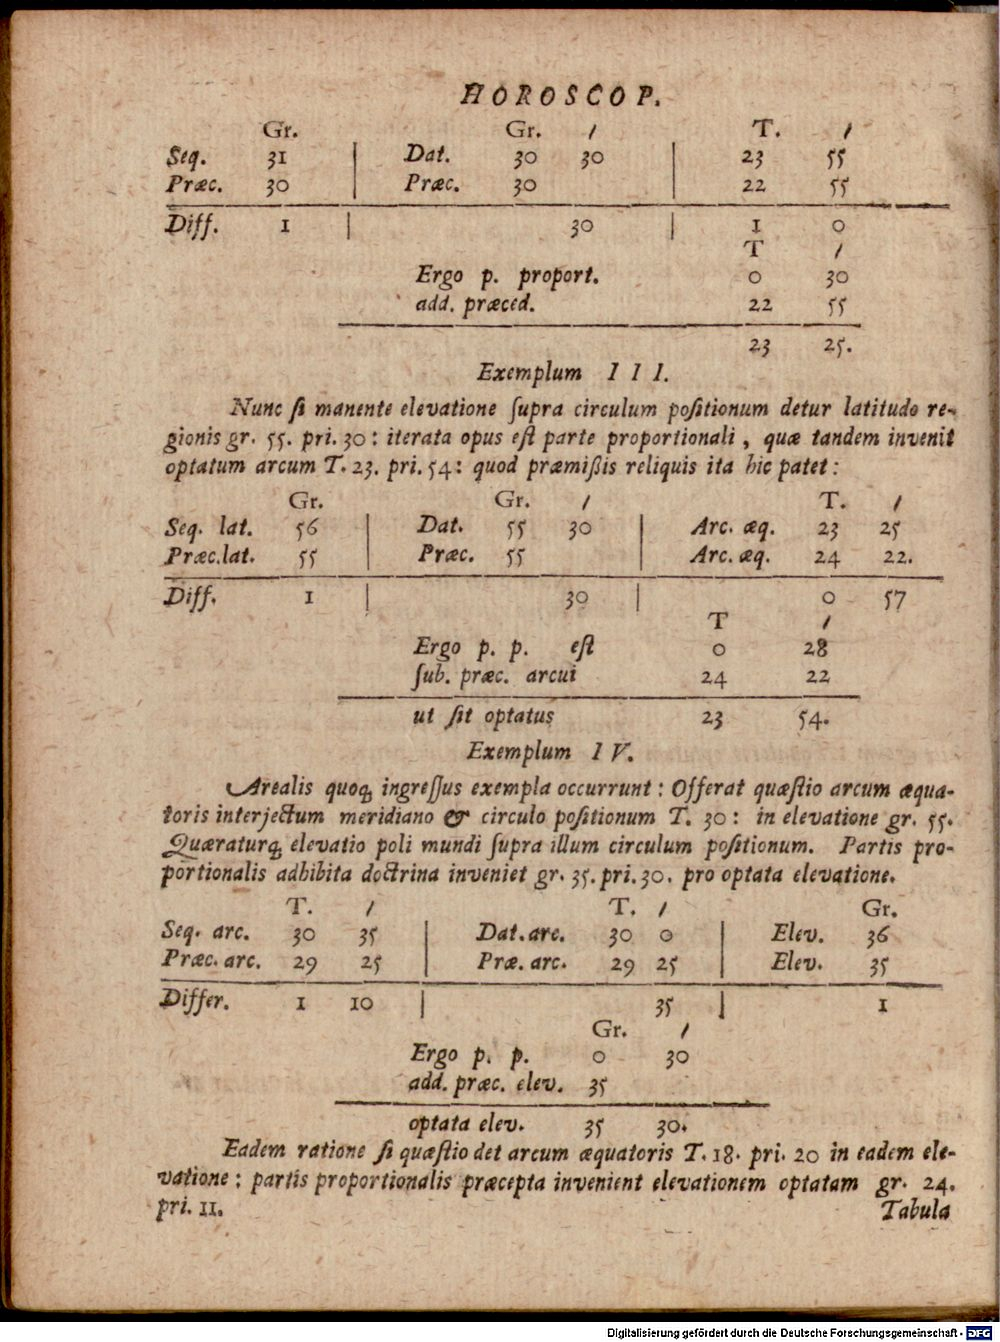 HOROSCOP.
Gr. Gr. / T. /
Seq. 31 | Dat. 30 30 | 23 55
Præc. 30 | Præc. 30 | 22 55
Diff. 1 | 30 | 1 0
T /
Ergo p. proport. 0 30
add. præced. 22 55
23 25.
Exemplum III.
Nunc ſi manente elevatione ſupra circulum poſitionum detur latitudo re-
gionis gr. 55. pri. 30: iterata opus eſt parte proportionali, quæ tandem invenit
optatum arcum T. 23. pri. 54: quod præmißis reliquis ita hic patet:
Gr. Gr. / T. /
Seq. lat. 56 | Dat. 55 30 | Arc. æq. 23 25
Præc. lat. 55 | Præc. 55 | Arc. æq. 24 22.
Diff. 1 | 30 | 0 57
T /
Ergo p. p. eſt 0 28
ſub. præc. arcui 24 22
ut ſit optatus 23 54.
Exemplum IV.
Arealis quoq́ ingreſſus exempla occurrunt: Offerat quæſtio arcum æqua-
toris interjectum meridiano & circulo poſitionum T. 30: in elevatione gr. 55.
Quæraturq́ elevatio poli mundi ſupra illum circulum poſitionum. Partis pro-
portionalis adhibita doctrina inveniet gr. 35. pri. 30. pro optata elevatione.
T. / T. / Gr.
Seq. arc. 30 35 | Dat. arc. 30 0 | Elev. 36
Præc. arc. 29 25 | Præ. arc. 29 25 | Elev. 35
Differ. 1 10 | 35 | 1
Gr. /
Ergo p. p. 0 30
add. præc. elev. 35
optata elev. 35 30.
Eadem ratione ſi quæſtio det arcum æquatoris T. 18. pri. 20 in eadem ele-
vatione: partis proportionalis præcepta invenient elevationem optatam gr. 24.
pri. 11.
Tabula
Digitalisierung gefördert durch die Deutsche Forschungsgemeinschaft - DFG